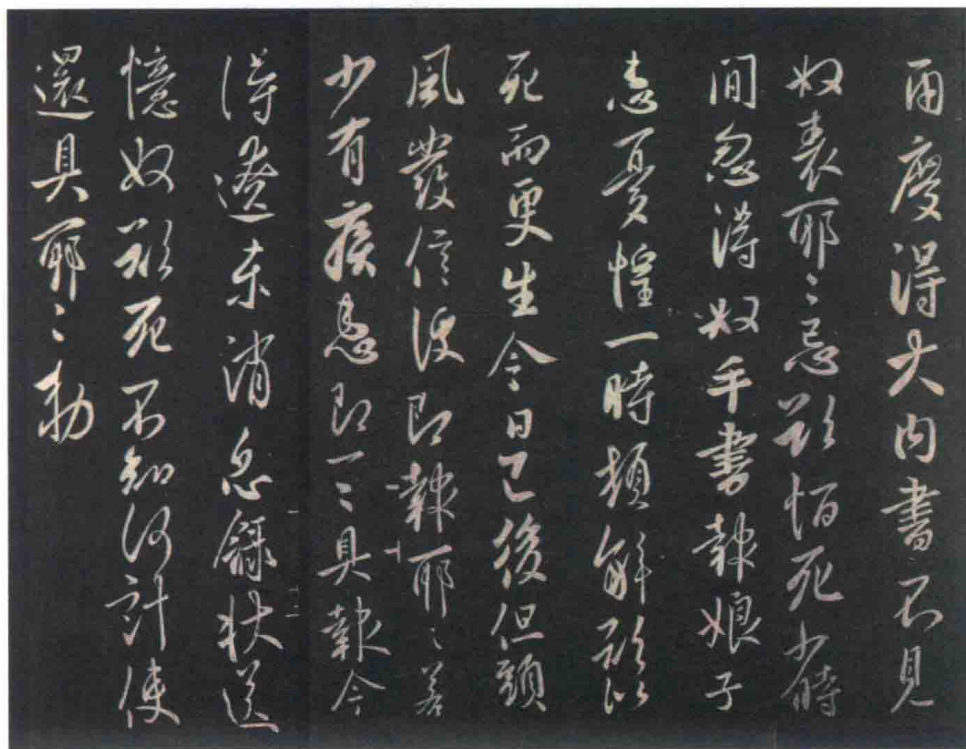 兩度得大內書不見
奴表耶〻忌欲恒死少時
間忽得奴手書報娘子
患憂惶一時頓解欲似
死而更生今日已後但頭
風發信便即報耶〻若
少有疾患即一〻具報今
得遼東消息錄狀送
憶奴欲死不知何計使
還具耶〻勅